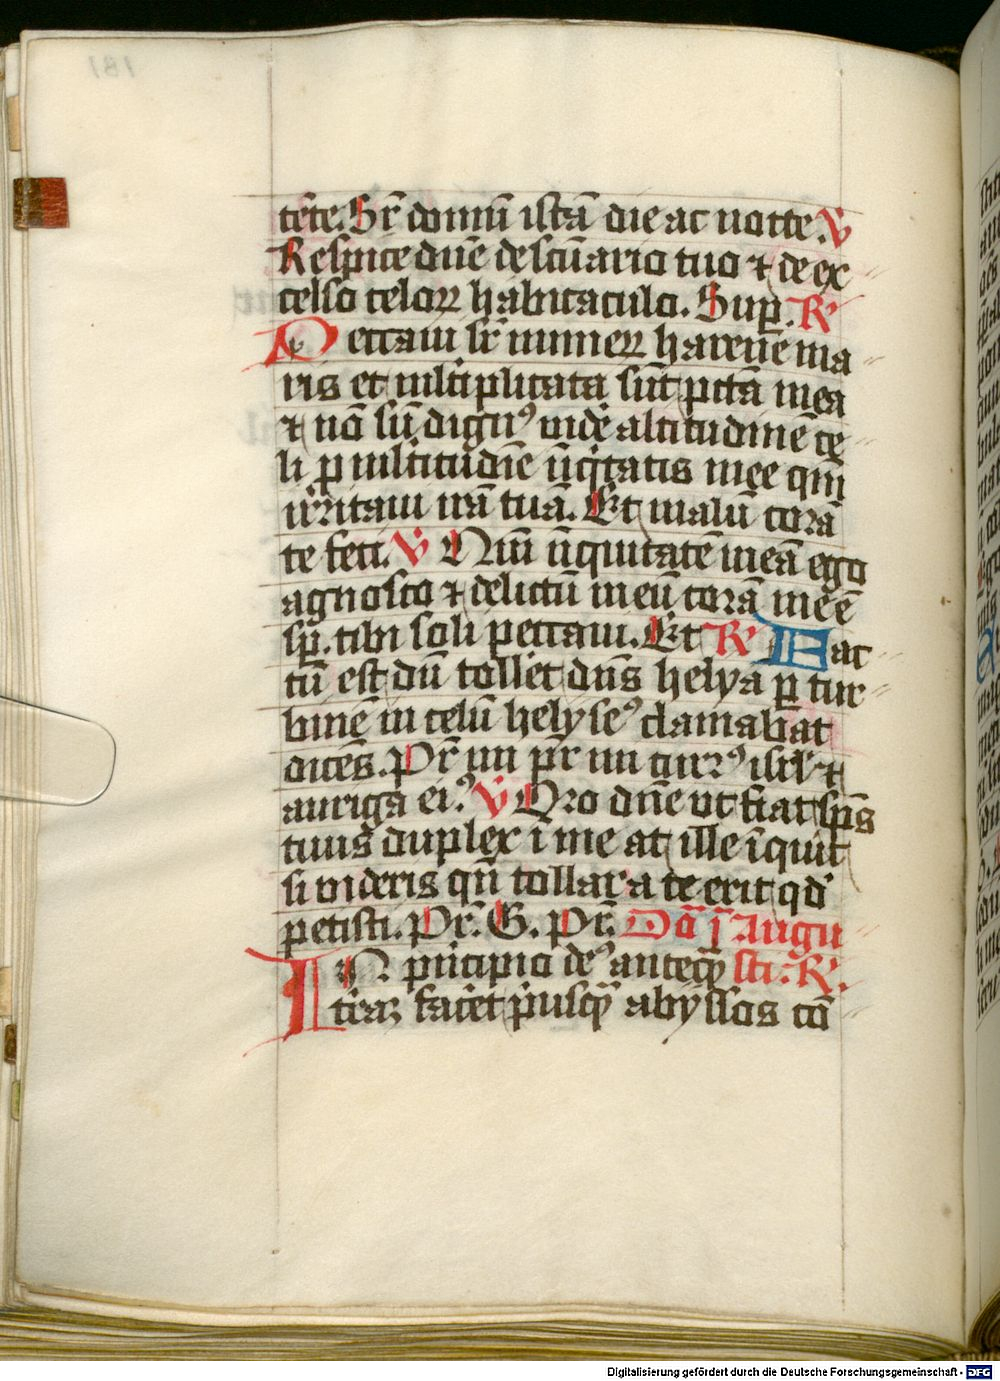 tēte. Sr̄ domū istā die ac nocte. V
Respice dn̄e de scūario tuo ⁊ de ex
celso celoꝝ habitaculo. Sup. R
Peccaui sr̄ numeꝝ harene ma
ris et ml̄tiplicata sūt pctā mea
⁊ nō sū dignꝰ vide altitudinē ce
li ꝑ ml̄titudīe īiq̇tatis mee qm̄
irritaui irā tuā. Et malū corā
te feci. V Qm̄ iniquitatē meā ego
agnosco ⁊ delictū meū corā me ē
sp̄. tibi soli peccaui. Et R Fac
tū est dū tollet dn̄s helya ꝑ tur
binē in celū helyseꝰ clamabat
dicēs. Pr̄ mi pr̄ mi currꝰ isrl̄ ⁊
auriga eiꝰ. V Oro dn̄e vt fiat sp̄s
tuus duplex ī me at ille īquit
si videris qn̄ tollar a te erit qd̓
petisti. Pr̄. G. Pr̄. Dn̄ica j Augu
IN pͥncipio deꝰ anteqꝫ sti. R.
terā faceͬt pͥusqꝫ abyssos cō
181
Digitalisierung gefördert durch die Deutsche Forschungsgemeinschaft - DFG